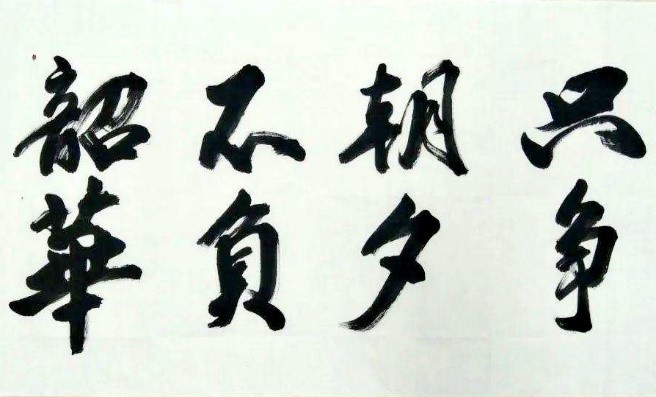 只争
朝夕
不負
韶華